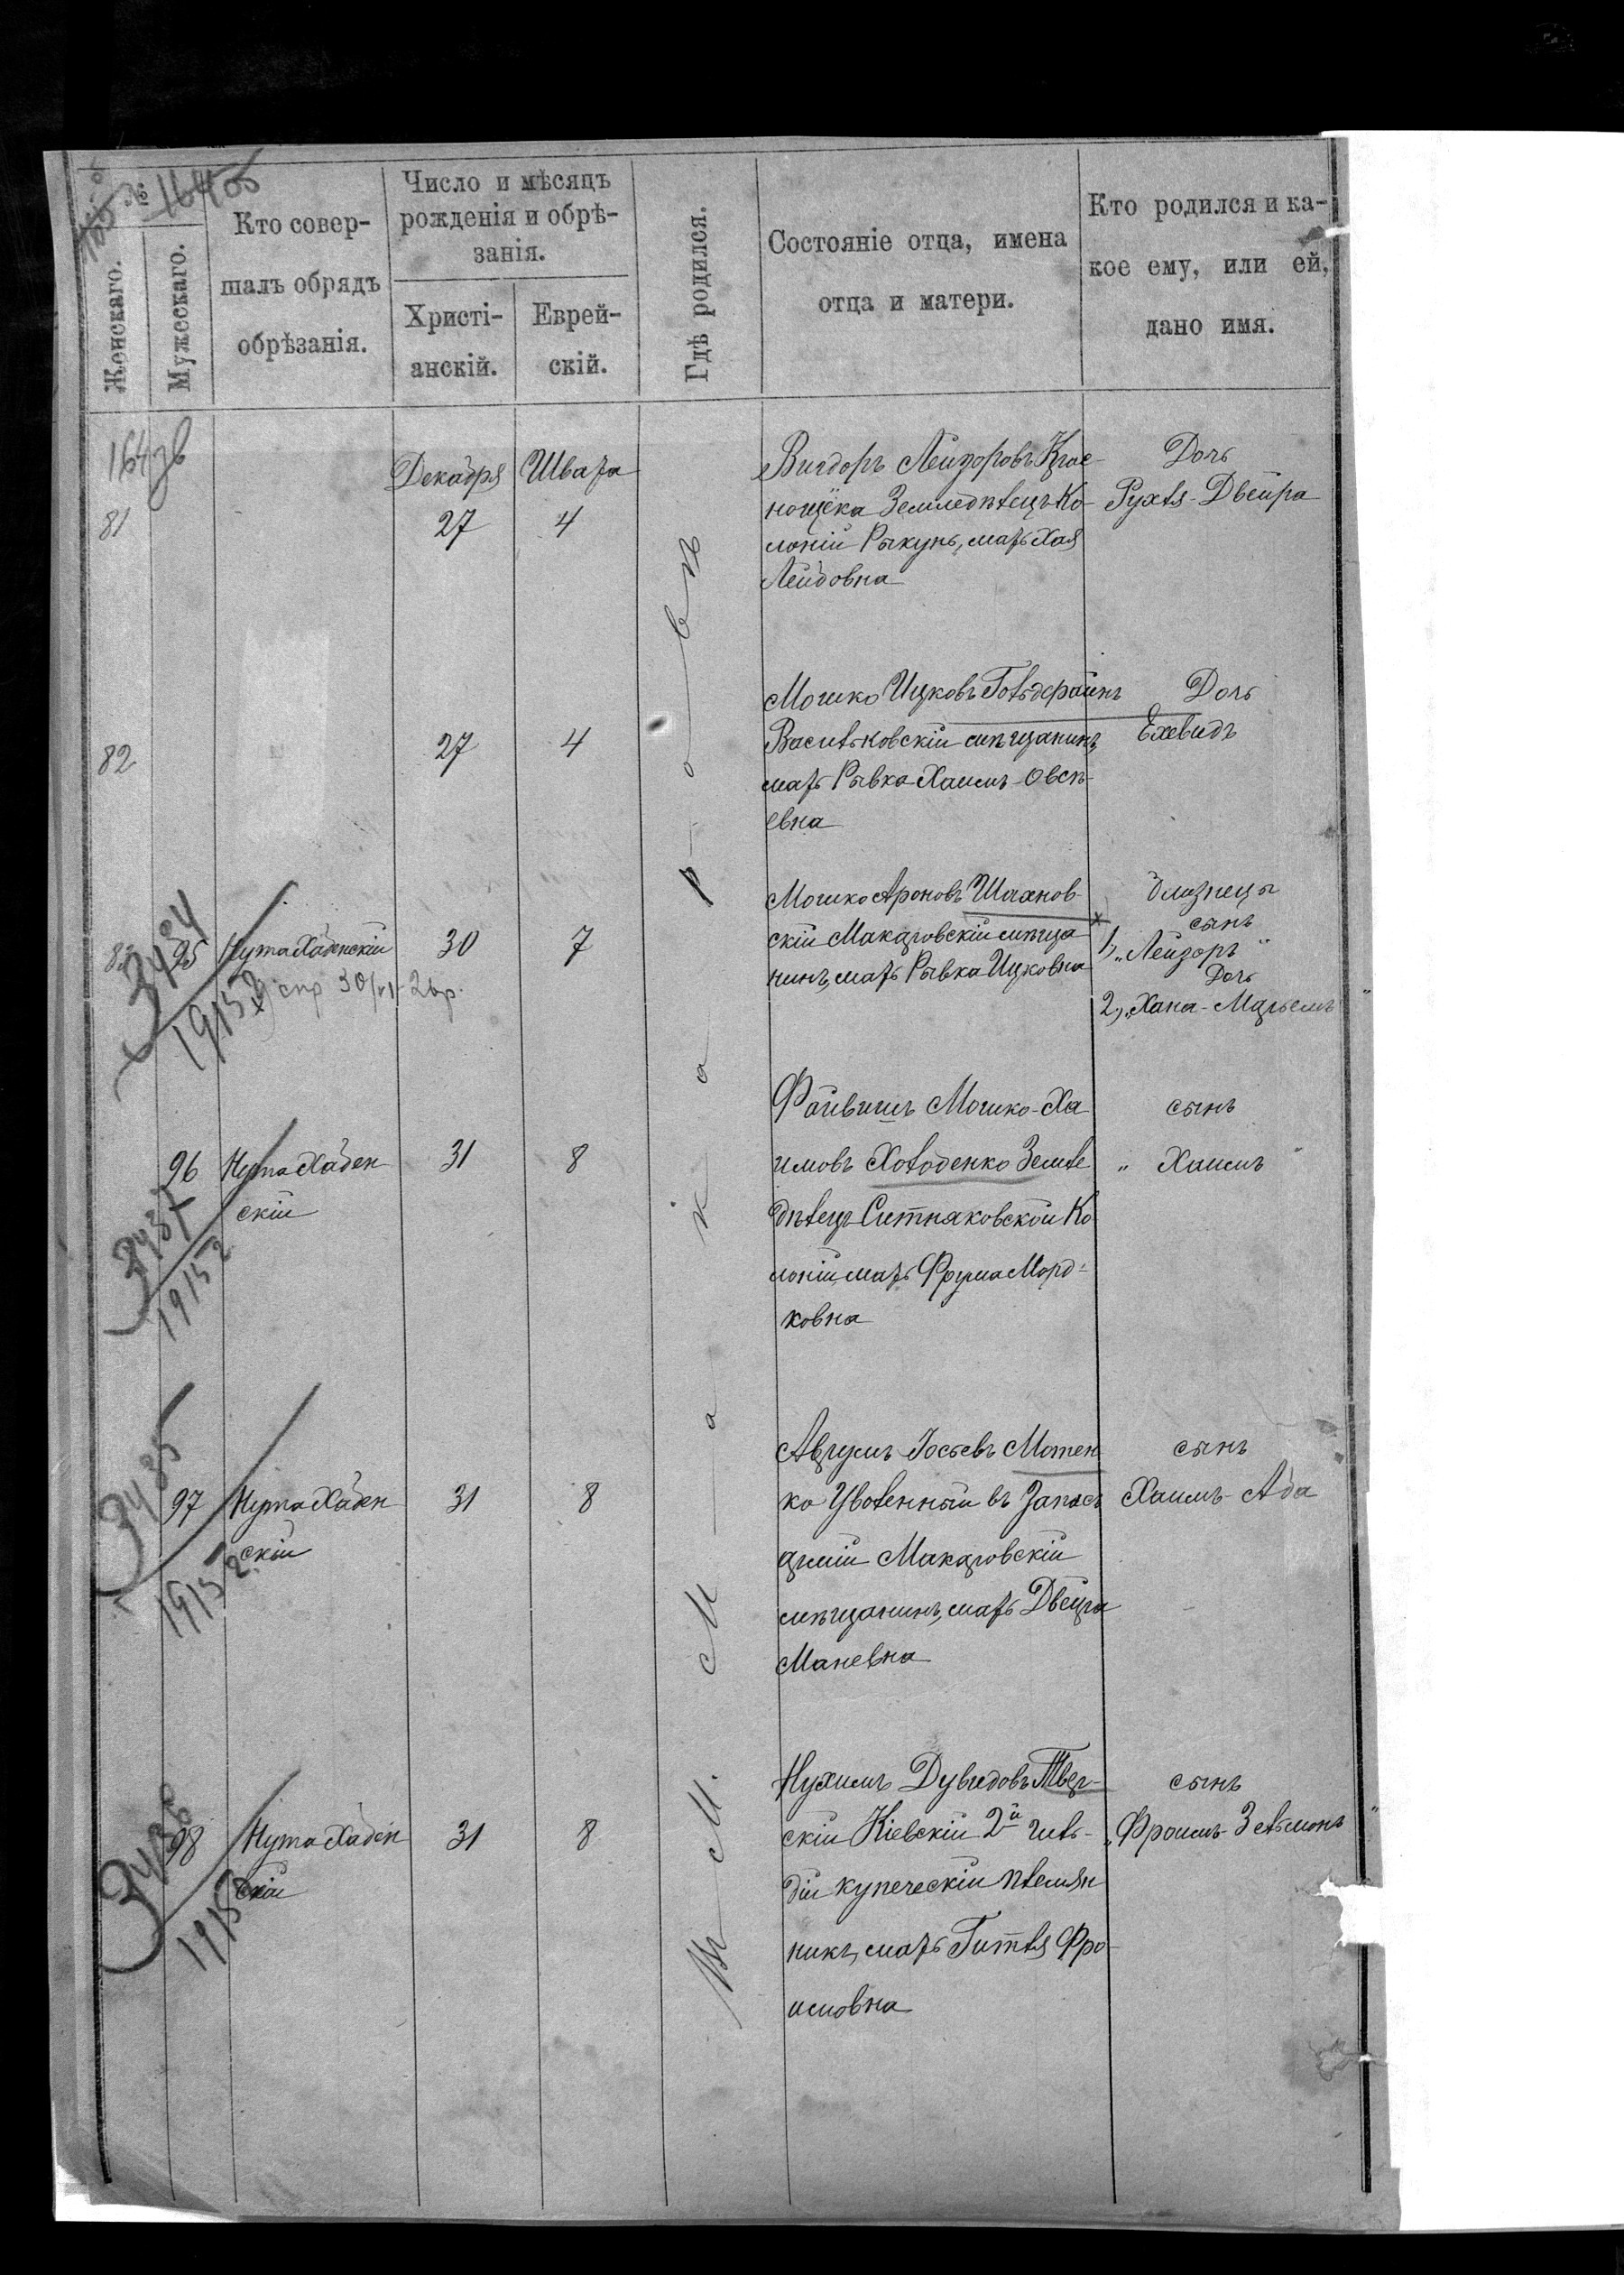 №
16405
Женскаго.
Мужескаго.
Кто совер-
шалъ обрядъ
обрѣзанія.
Число и мѣсяцъ
рожденія и обрѣ-
занія.
Христі-
анскій.
Еврей-
скій.
Гдѣ родился.
Состояніе отца, имена
отца и матери.
Кто родился и ка-
кое ему, или ей,
дано имя.
Въ м. Макаровѣ
81
Декабря
27
Швата
4
Вигдоръ Лейзоровъ Крас-
нощёка Земледѣлецъ Ко-
лоніи Рыкунь, мать Хая
Лейбовна
Дочь
Рухля-Двейра
82
27
4
Мошко Ицковъ Гольдфайнъ
Васильковскій мѣщанинъ,
мать Рывка Хаимъ-Овсѣ-
евна
Дочь
Ехевидъ
3484
1915 г
83
95
Нута Хабенскій
30
7
Мошко Ароновъ Шахнов-
скій Макаровскій мѣща
нинъ, мать Рывка Ицковна
близнецы
сынъ
1, „Лейзоръ"
Дочь
2, „Хана-Марьемъ"
3487
1915 г
96
Нута Хабен
скій
31
8
Файвишъ Мошко-Ха
имовъ Холоденко Земле
дѣлецъ Ситняковской Ко
лоніи, мать Фрума Морд-
ковна
сынъ
„Хаимъ"
3485
1915 г.
97
Нута Хабен
скій
31
8
Аврумъ Іосьевъ Мотен
ко Уволенный въ Запасъ
арміи Макаровскій
мѣщанинъ, мать Двейра
Маневна
сынъ
Хаимъ-Аба
3486
1915
98
Нута Хабен
скій
31
8
Нухимъ Дувидовъ Твер-
скій Кіевскій 2й гиль-
діи купеческій племян
никъ, мать Гитля Фро-
имовна
сынъ
„Фроимъ-Зельманъ"